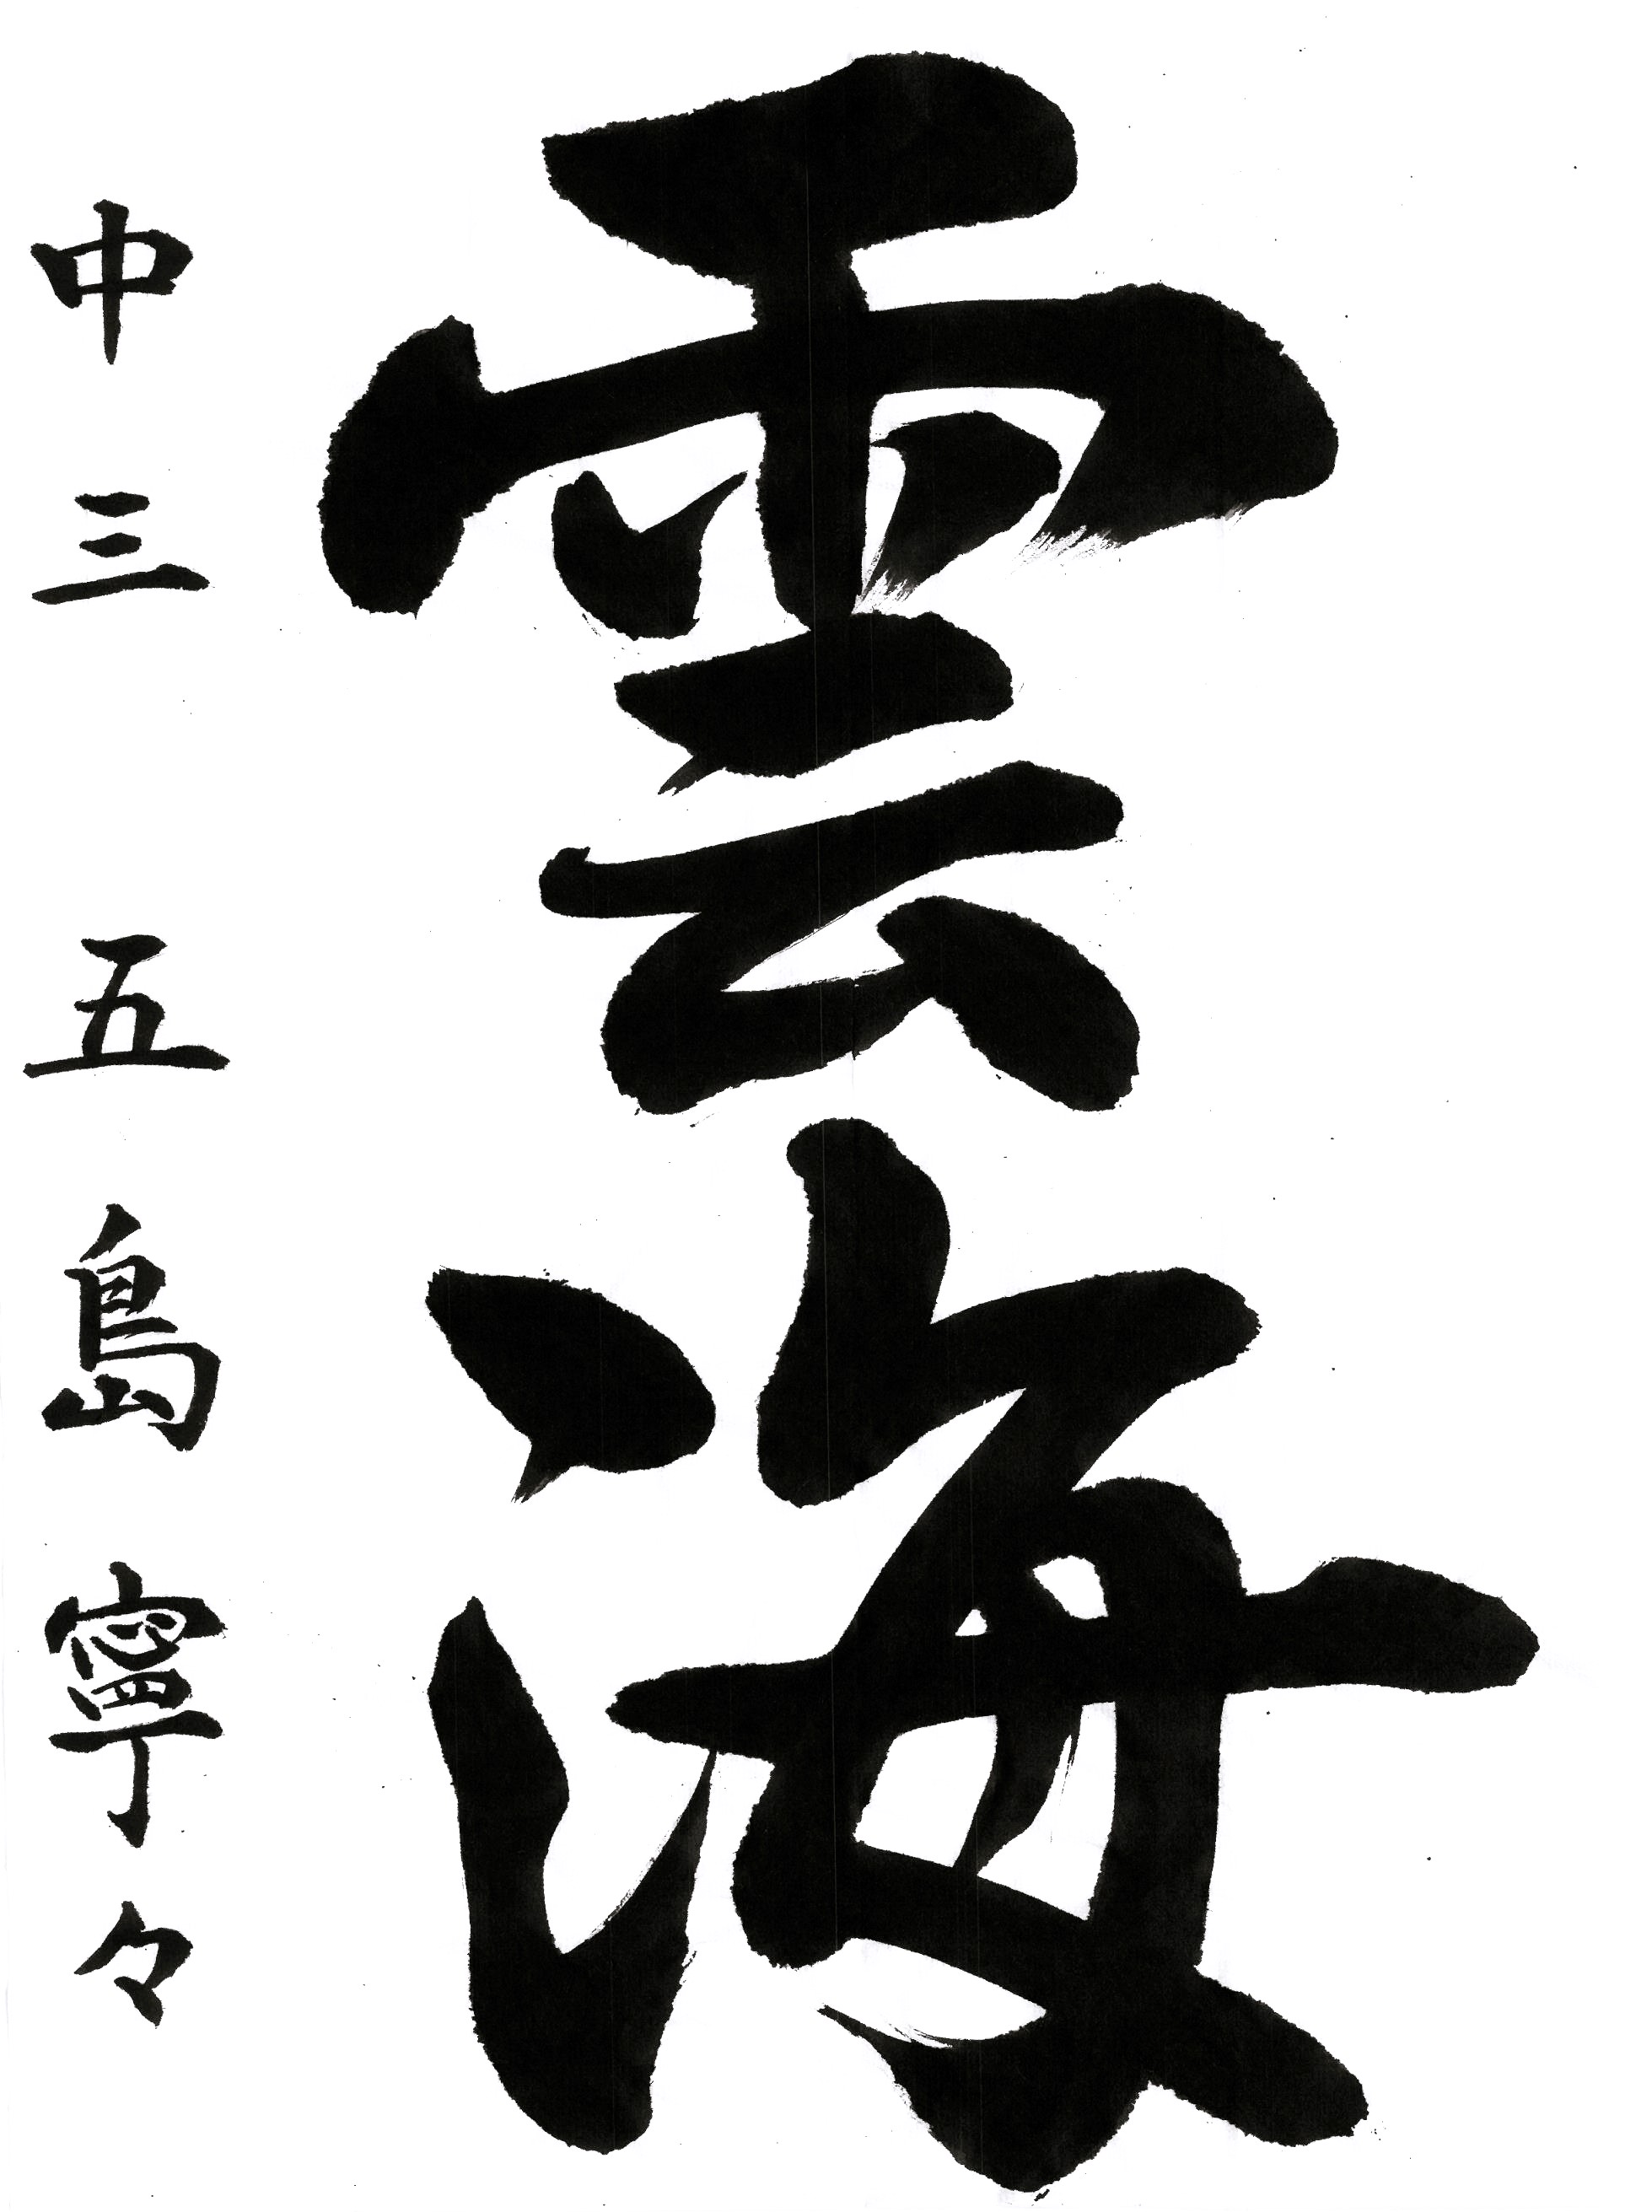 雲海
中三 五島寧々